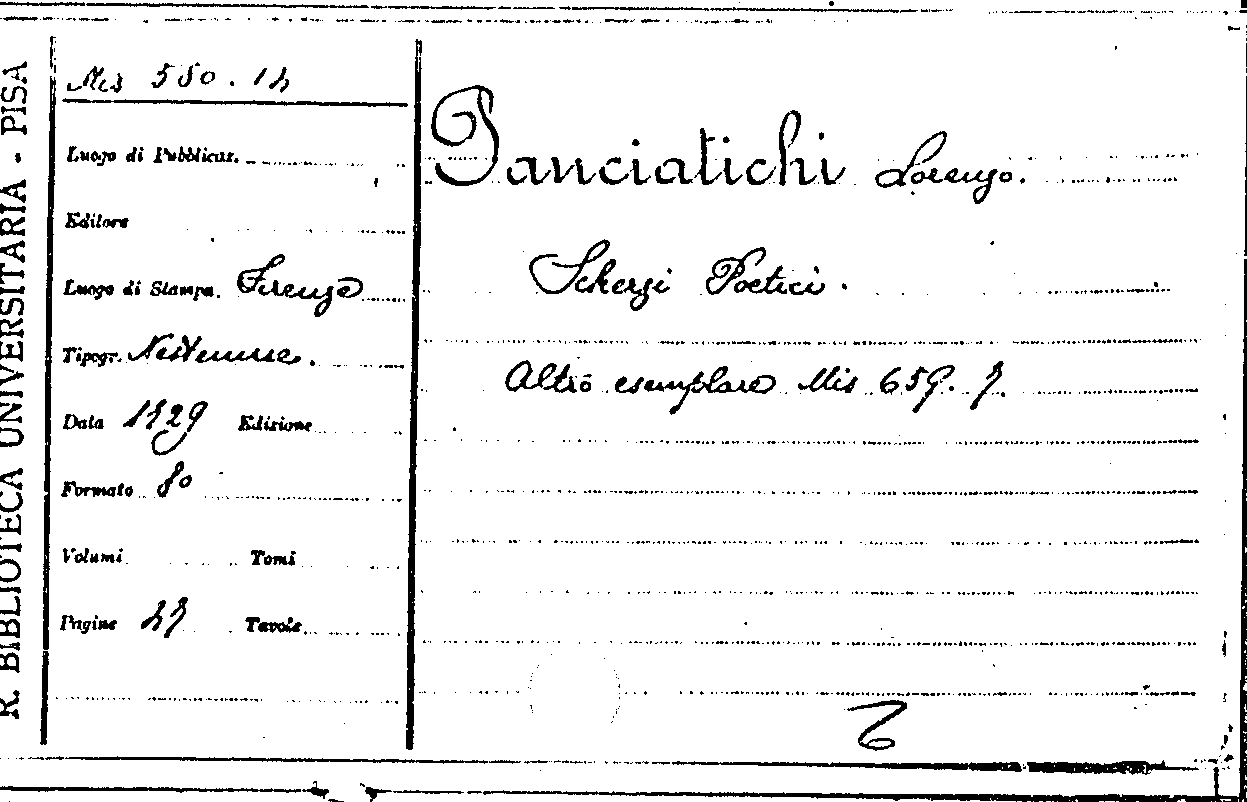 R. BIBLIOTECA UNIVERSITARIA - PISA
Mis 580. 14
Luogo di Pubblicaz.
Editore
Luogo di Stampa. Firenze
Tipogr. Nestenus.
Data 1729 Edizione
Formato 8º
Volumi Tomi
Pagine 47 Tavole
Panciatichi Lorenzo.
Scherzi Poetici.
Altro esemplare Mis 659. 7.